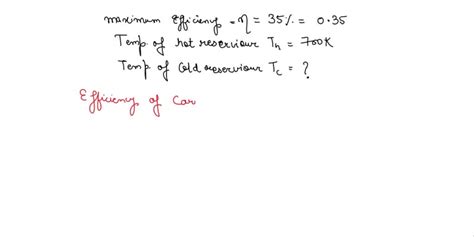 Maximum Efficiency = η = 35% = 0.35
Temp of hot reserviour Th = 700K
Temp of Cold reserviour Tc = ?
Efficiency of Car